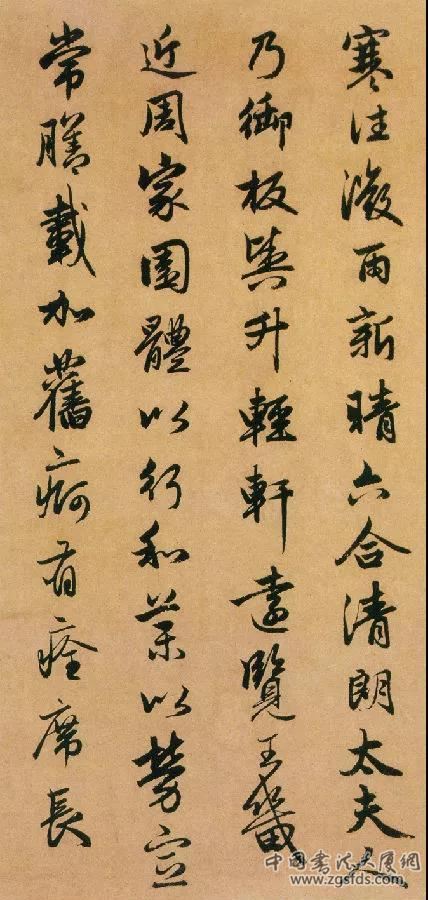 寒往微雨新晴六合清朗太夫人
乃御板輿升輕軒遠覽王畿
近周家園體以行和藥以勞宣
常膳載加舊痾有痊席長
中国书法大厦网
www.zgsfds.com